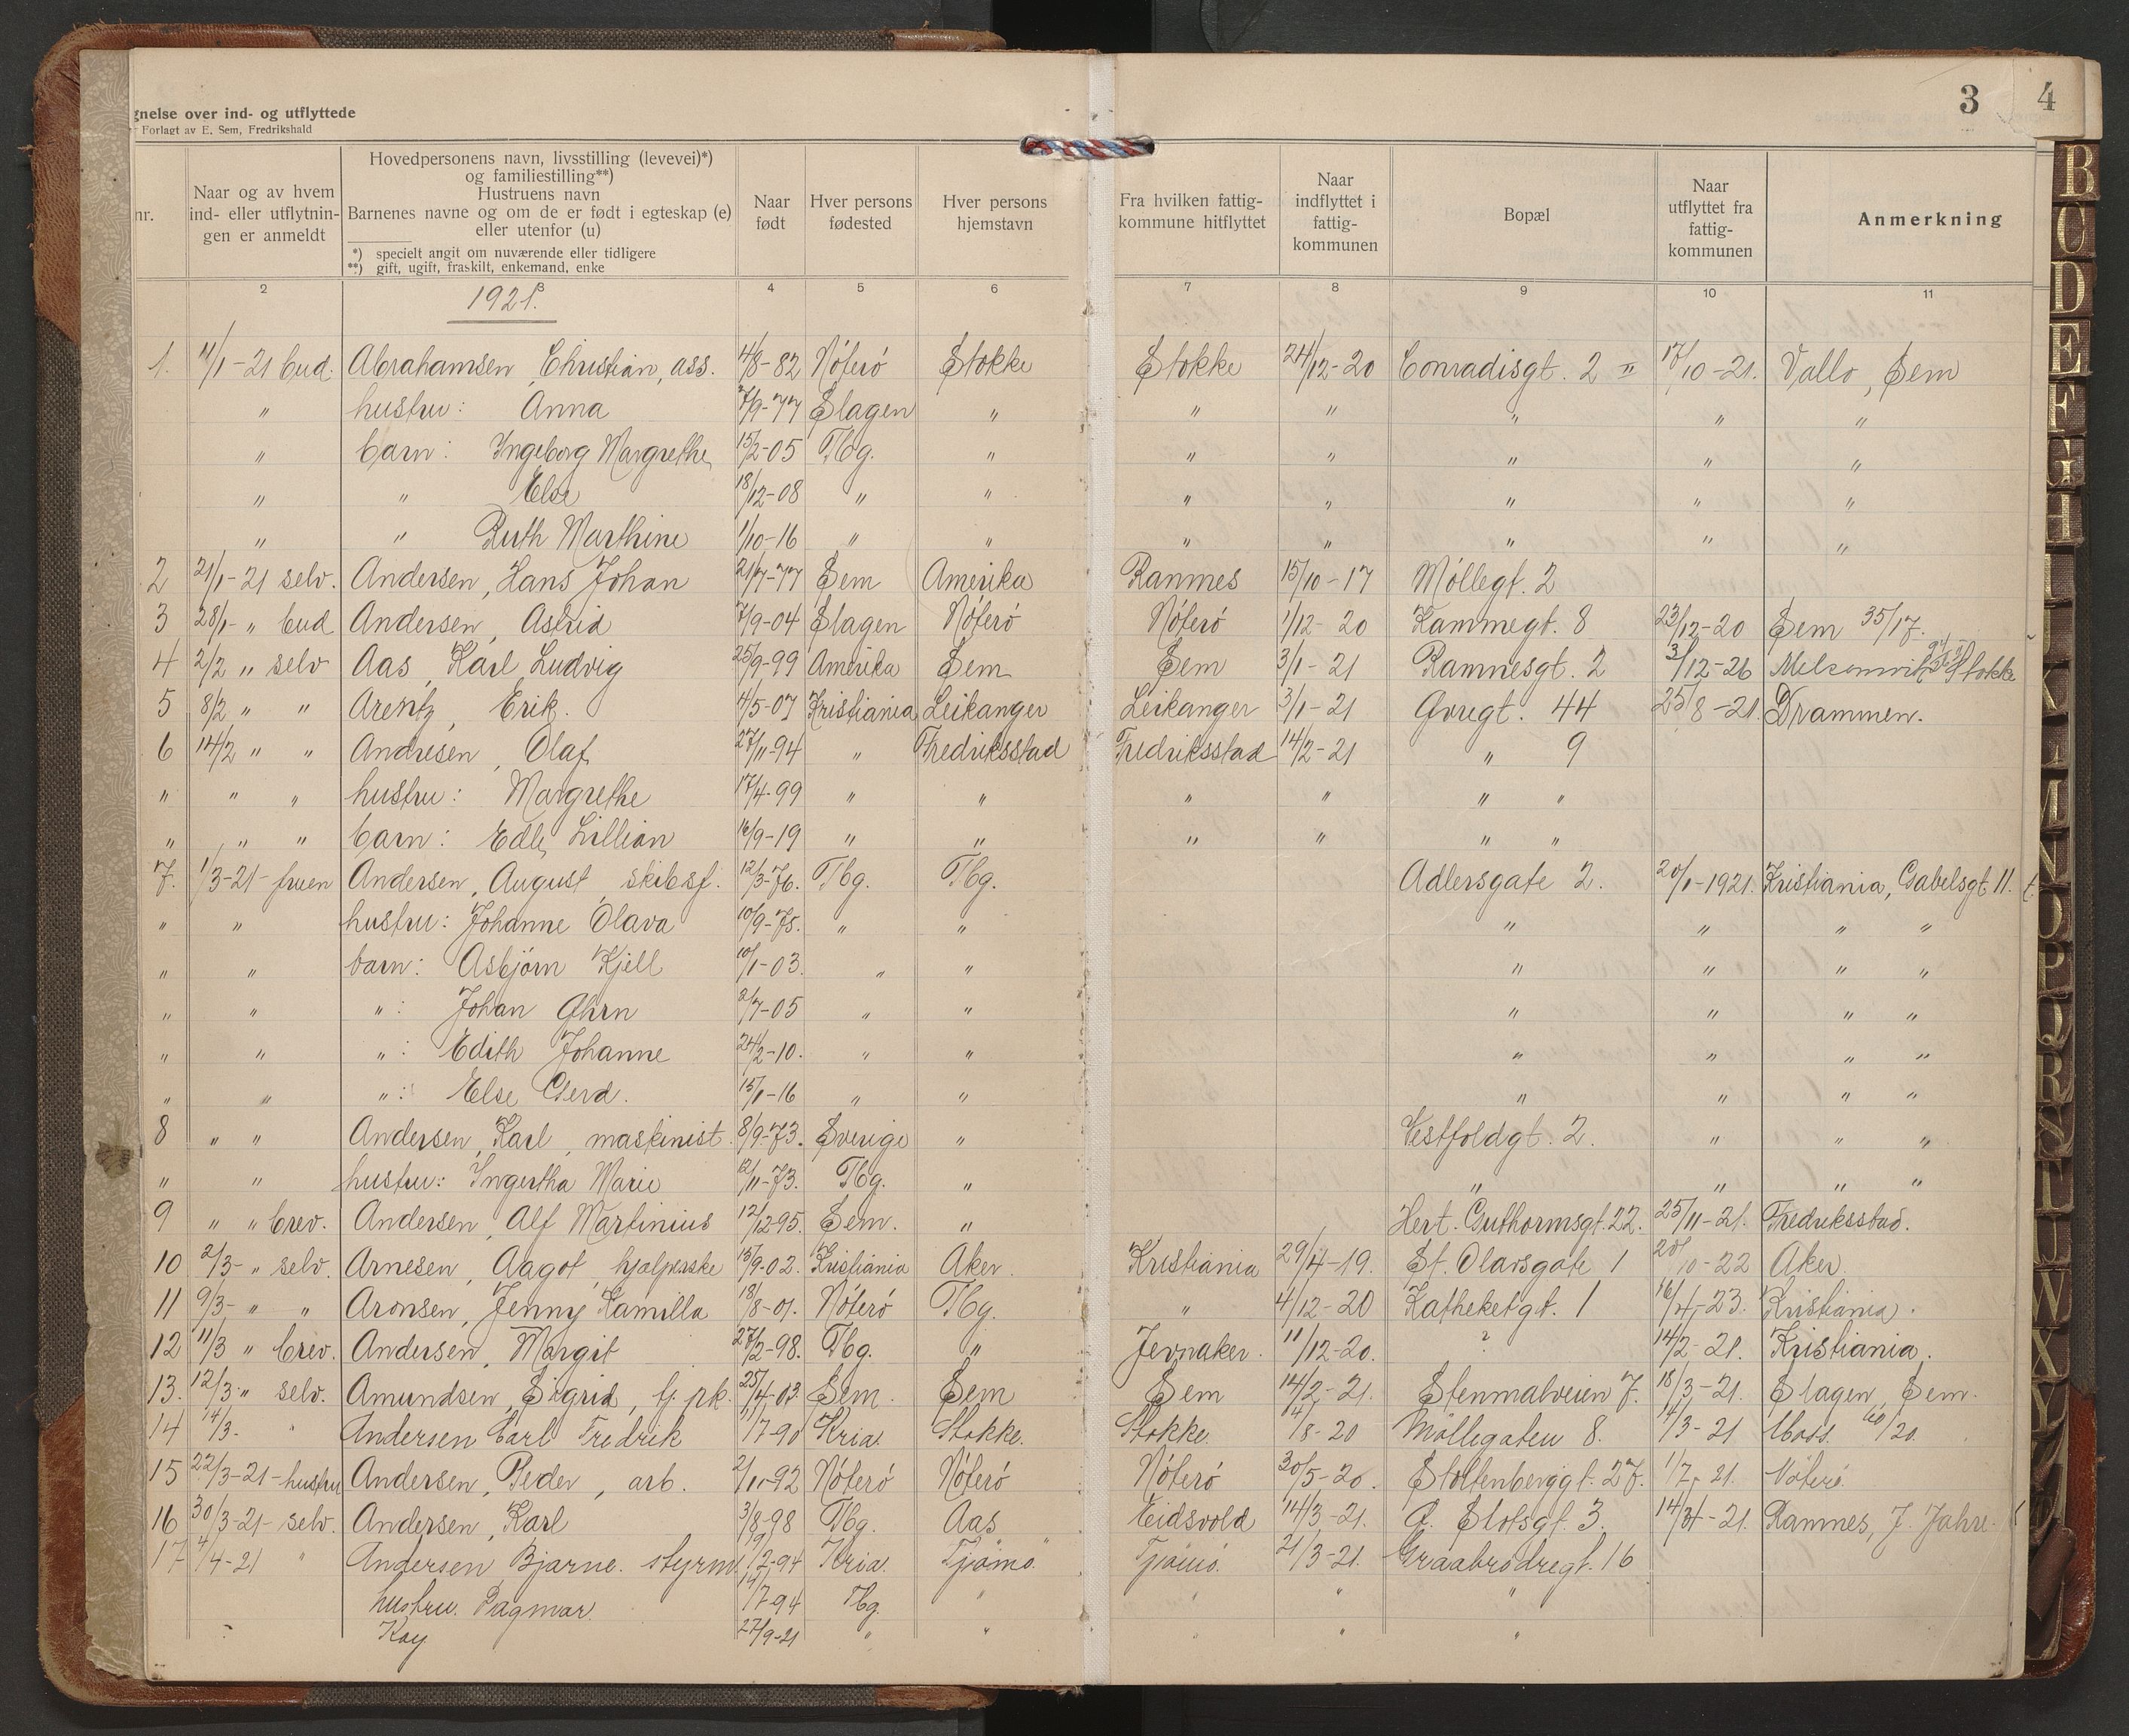 gnelse over ind- og utflyttede
Forlagt av E. Sem, Fredrikshald
3 4
nr. | Naar og av hvem ind- eller utflytningen er anmeldt | Hovedpersonens navn, livsstilling (levevei)*) og familiestilling**) Hustruens navn Barnenes navne og om de er født i egteskap (e) eller utenfor (u) *) specielt angit om nuværende eller tidligere **) gift, ugift, fraskilt, enkemand, enke | Naar født | Hver persons fødested | Hver persons hjemstavn | Fra hvilken fattigkommune hitflyttet | Naar indflyttet i fattigkommunen | Bopæl | Naar utflyttet fra fattigkommunen | Anmerkning
2 3 4 5 6 7 8 9 10 11
1921.
1. 11/1-21 bud. Abrahamsen, Christian, ass. 4/8-82 Nøterø Stokke Stokke 24/12-20 Conradisgt. 2 II 17/10-21. Vallo, Sem
" hustru: Anna 7/9-77 Slagen " " " " " "
" barn: Ingeborg Margrethe 15/2-05 Tbg. " " " " " "
" " Else 18/12-08 " " " " " " "
" " Ruth Marthine 1/10-16 " " " " " " "
2 21/1-21 selv. Andersen, Hans Johan 21/7-77 Sem Amerika Ramnes 15/10-17 Møllegt. 2
3 28/1- " bud Andersen, Astrid 7/9-04 Slagen Nøterø Nøterø 1/12-20 Kammegt. 8 23/12-20 Sem 35/17.
4 2/2 " selv Aas, Karl Ludvig 25/9-99 Amerika Sem Sem 3/1-21 Ramnesgt. 2 3/12-26 Melsomvik Stokke
5 8/2 " " Arentz, Erik. 4/5-07 Kristiania Leikanger Leikanger 3/1-21 Gvregt. 44 25/8-21. Drammen.
6 14/2 " " Andresen, Olaf 27/11-94 " Fredriksstad Fredriksstad 14/2-21 " 9
" " " hustru: Margrethe 17/4-99 " " " " " "
" " " barn: Edle Lillian 16/9-19 " " " " " "
7. 1/3-21- fruen Andersen, August, skibsf. 12/3-76. Tbg. Tbg. Adlersgate 2. 20/1-1921. Kristiania, Gabelsgt. 11.
" " hustru: Johanne Olava 10/9-75. " " " " " "
" " barn: Asbjørn Kjell 10/1-03. " " " " " "
" " " : Johan 2/7-05 " " " " " "
" " " : Edith Johanne 24/2-10. " " " " " "
" " " : Else Gerd. 15/1-16 " " " " " "
8 " " Andersen, Karl, maskinist. 8/9-73. Sverige " Vestfoldgt. 2. " " "
" " hustru: Ingertha Marie 12/11-73. Tbg. " " " " "
9 " " brev. Andersen, Alf Martinius 12/12-95. Sem. " Hert. Guthormsgt. 22. 25/11-21. Fredriksstad.
10 2/3- " selv. Arnesen, Aagot, hjælperske 15/9-02. Kristiania Aker. Kristiania 29/4-19. St. Olavsgate 1 20/10-22 Aker.
11 9/3- " " Aronsen, Jenny Kamilla 18/8-01. Nøterø Tbg. " 4/12-20 Katheketgt. 1 16/4-23. Kristiania.
12 11/3 " brev. Andersen, Margit 27/2-98. Tbg. " Jevnaker. 11/12-20. ? 14/2-21. Kristiania.
13. 12/3- " selv. Amundsen, Sigrid, tj. pk. 25/4-03. Sem. Sem Sem 14/2-21. Stenmalveien 7. 18/3-21. Slagen, Sem.
14 14/3- " Andersen Carl Fredrik 11/7-90 Kria. Stokke. Stokke. 14/8-20 Møllegaten 8. 14/3-21 Moss. 40/20.
15 22/3-21- hustru Andersen, Peder, arb. 2/11-92 Nøterø Nøterø Nøterø 30/5-20. Stoltenberggt. 27. 1/7-21. Nøterø.
16 30/3-21- selv. Andersen, Karl 3/8-98 Tbg. Aas Eidsvold 14/3-21. Q. Slotsgt. 3. 14/3-21. Ramnes, J. Jahre.
17 4/4-21 " Andersen Bjarne. styrm. 19/2-94 Kria. Tjømø. Tjømø. 21/3-21. Graabrødregt. 16
hustru. Dagmar. 14/7-94 Tbg. " " " "
Kay 27/9-21 " " " " "
B
C
D
E
F
G
H
I
J
K
L
M
N
O
P
Q
R
S
T
U
W
X
Y